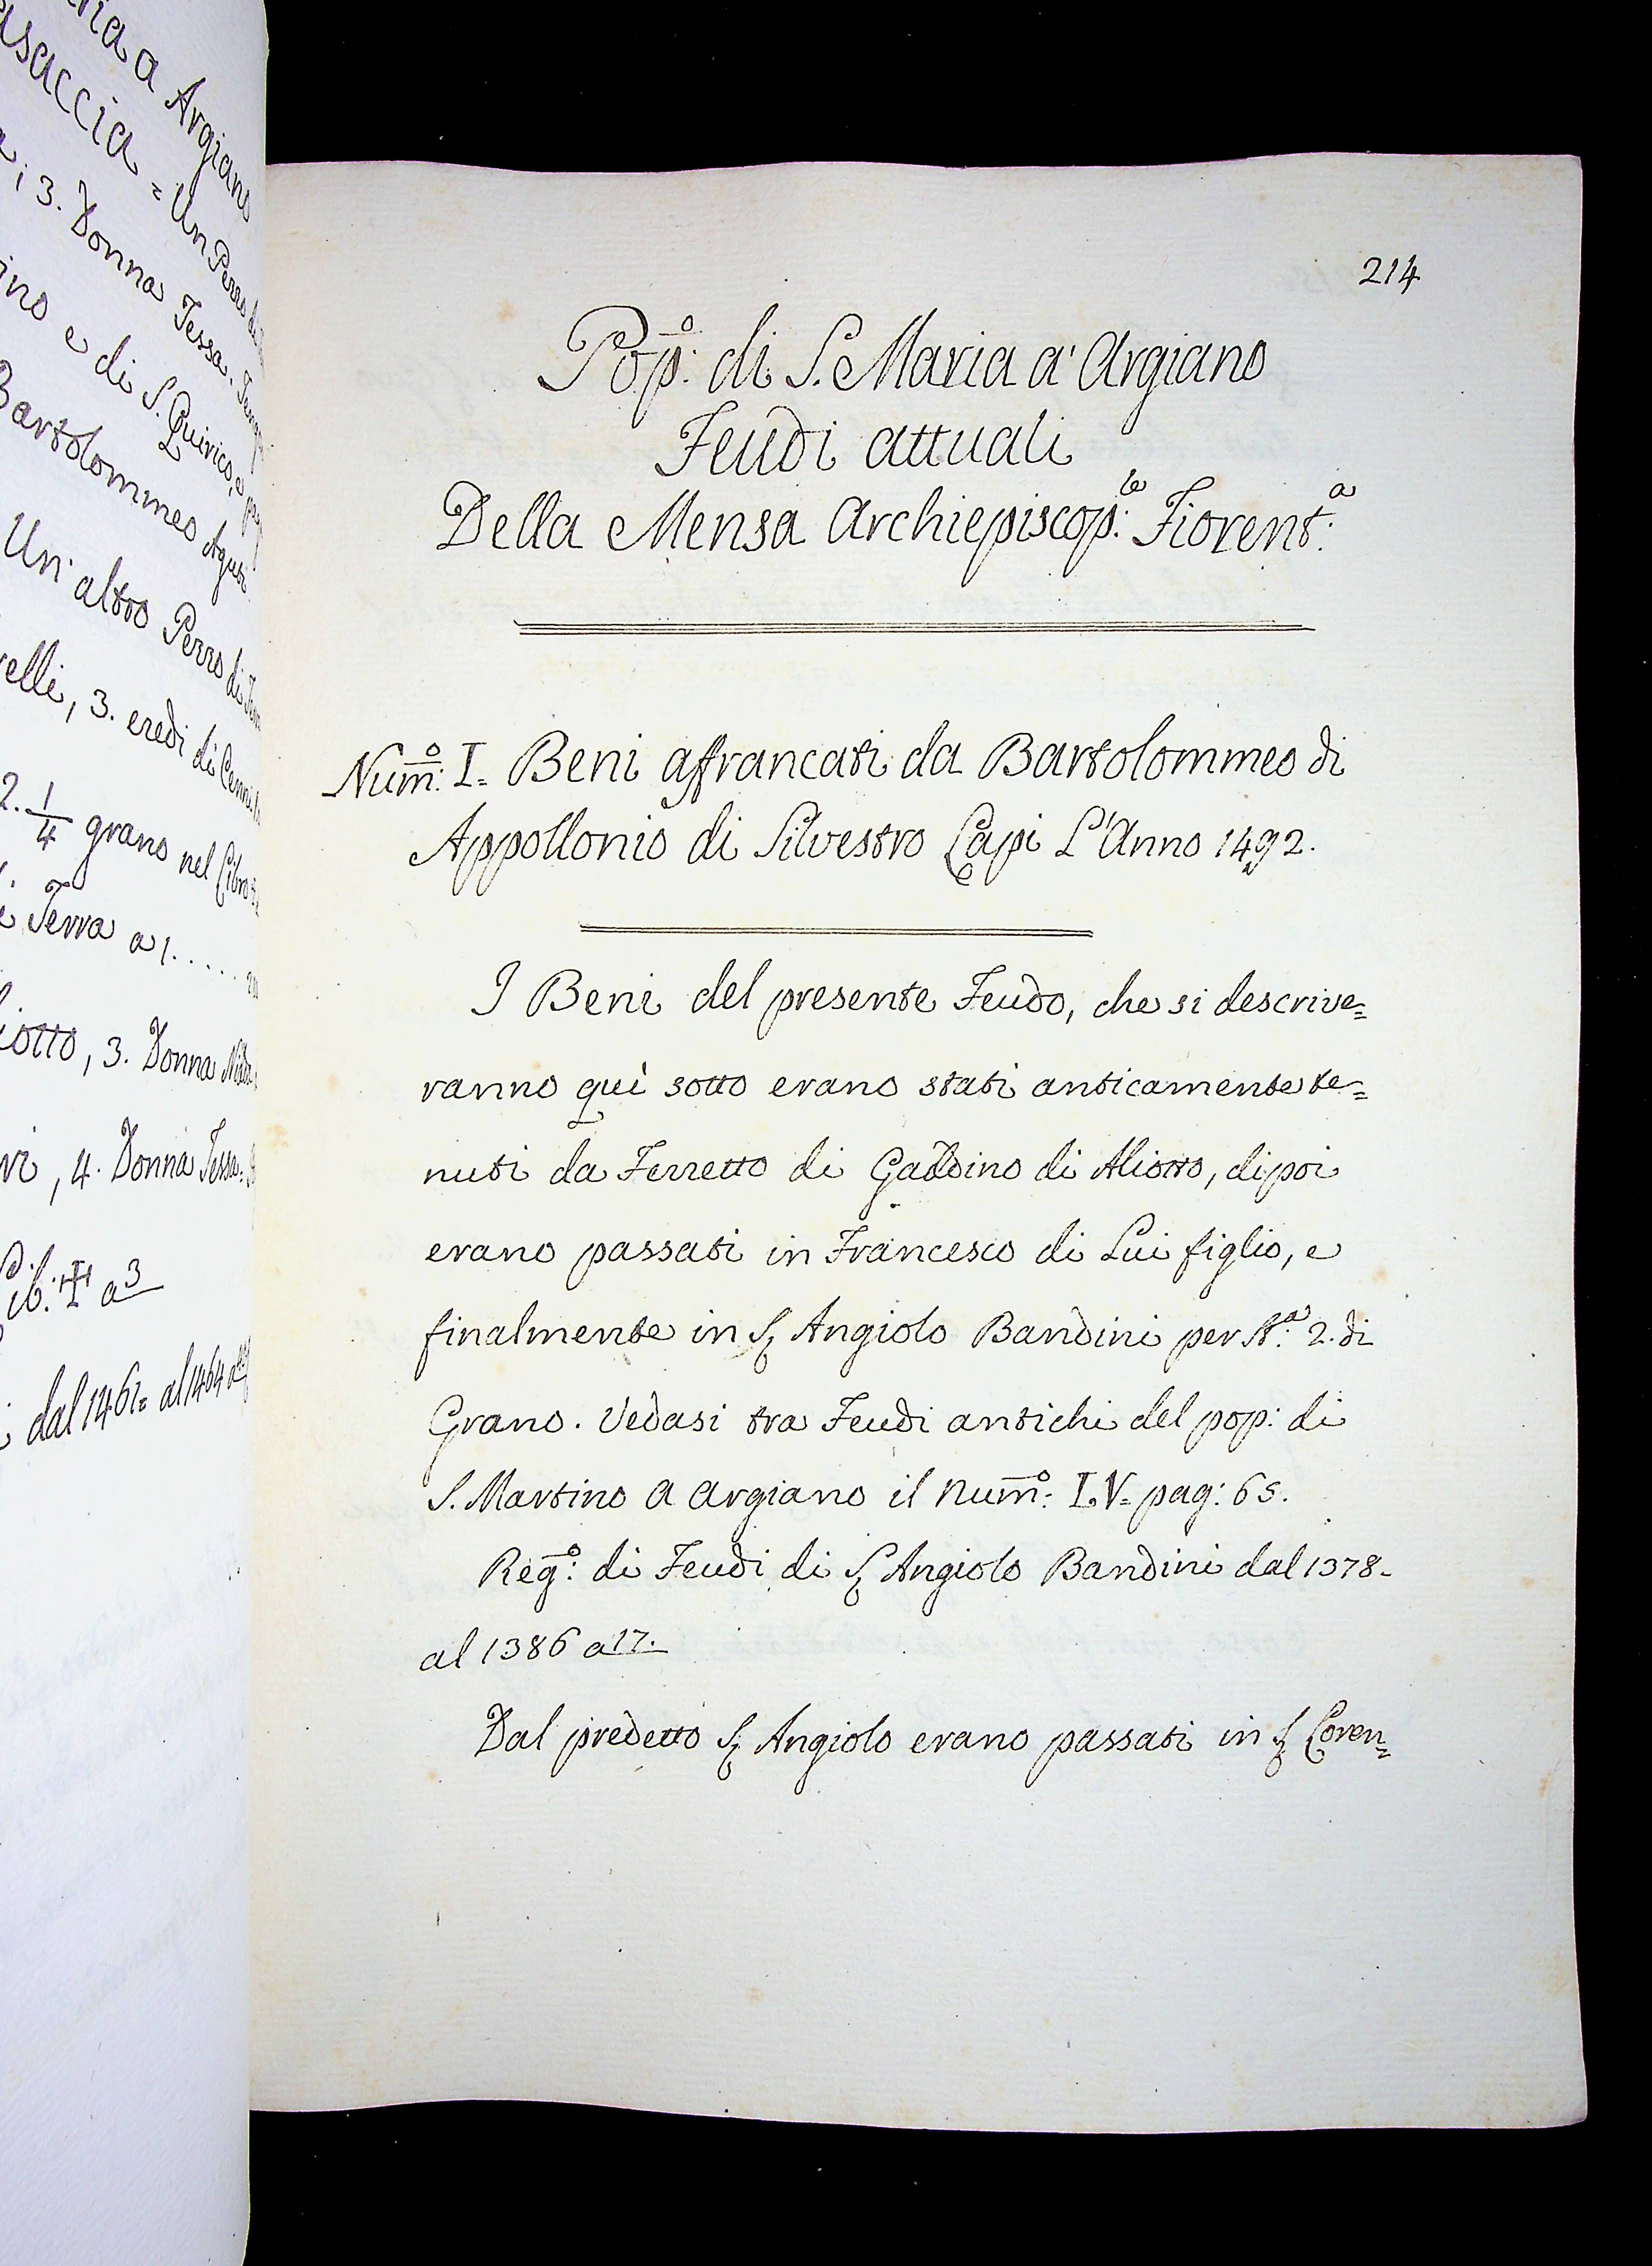 ia a Argiano
asaccia = Un Pezzo di
a; 3. Donna Tessa.
ino e di S. Quirico, e
Bartolommeo
Un' altro Pezzo di
elli, 3. eredi di
2. 1/4 grano nel Libro
e Terra a 1.....
iotto, 3. Donna
vi, 4. Donna Tessa
a 3
dal 1461= al 1464
214
Pop:o di S. Maria a' Argiano
Feudi attuali
Della Mensa Archiepiscop:le Fiorent:a
Num:o I= Beni affrancati da Bartolommeo di
Appollonio di Silvestro Lapi L'Anno 1492.
I Beni del presente Feudo, che si descrive=
ranno quì sotto erano stati anticamente te=
nuti da Ferretto di Gaddino di Aliotto, dipoi
erano passati in Francesco di Lui figlio, e
finalmente in S. Angiolo Bandini per St:a 2. di
Grano. Vedasi tra Feudi antichi del pop: di
S. Martino a Argiano il Num:o I.V= pag: 65.
Reg:o di Feudi di S. Angiolo Bandini dal 1378-
al 1386 a 17.
Dal predetto S. Angiolo erano passati in S. Loren=